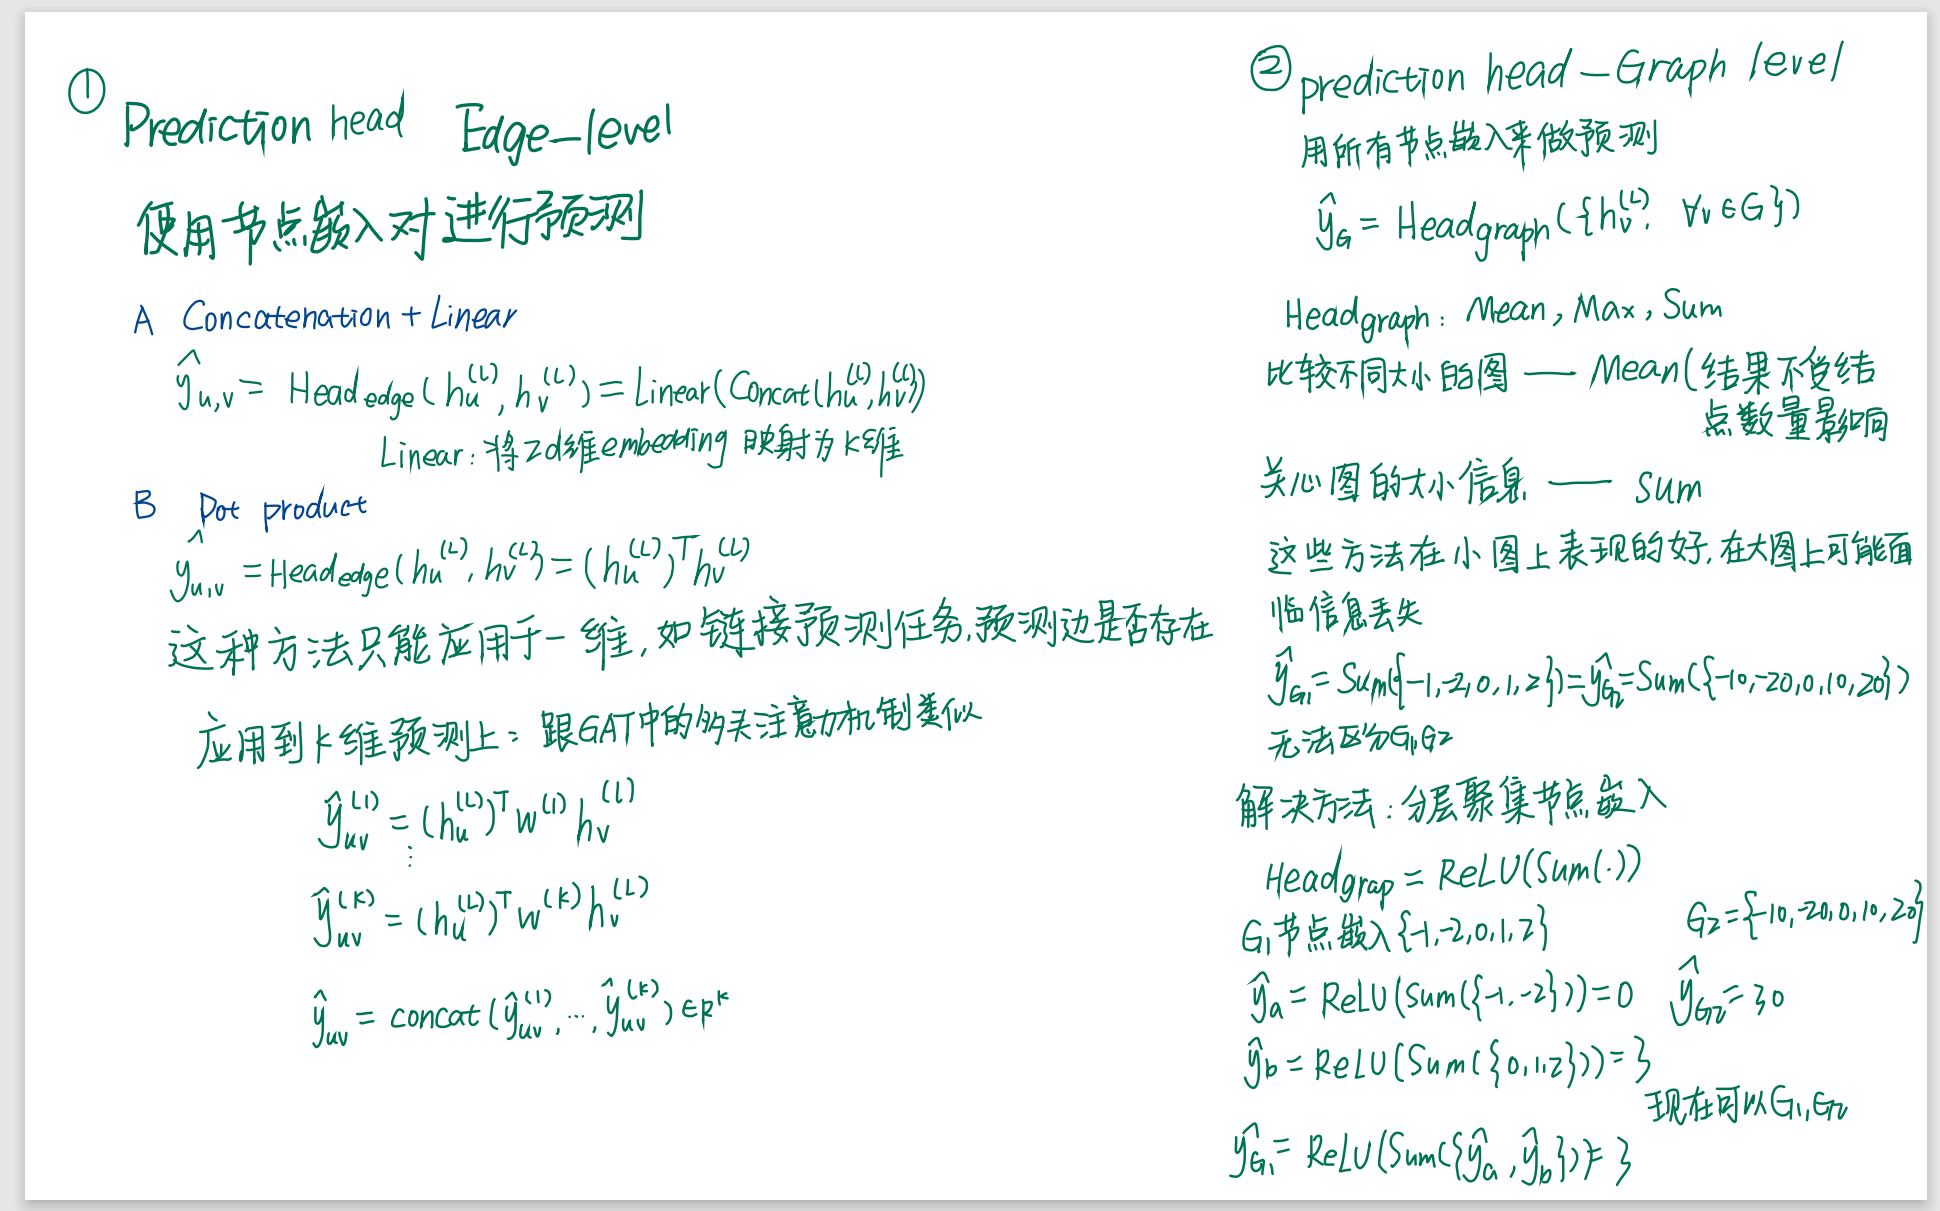 ①
Prediction head Edge-level
使用节点嵌入对进行预测
A Concatenation + Linear
ŷ_{u,v} = Head_{edge}(h_u^{(L)}, h_v^{(L)}) = Linear(Concat(h_u^{(L)}, h_v^{(L)}))
Linear: 将2d维embedding 映射为k维
B Dot product
ŷ_{u,v} = Head_{edge}(h_u^{(L)}, h_v^{(L)}) = (h_u^{(L)})^T h_v^{(L)}
这种方法只能应用于一维,如链接预测任务,预测边是否存在
应用到k维预测上: 跟GAT中的多头注意力机制类似
ŷ_{uv}^{(1)} = (h_u^{(L)})^T W^{(1)} h_v^{(L)}
⋮
ŷ_{uv}^{(k)} = (h_u^{(L)})^T W^{(k)} h_v^{(L)}
ŷ_{uv} = concat(ŷ_{uv}^{(1)}, ..., ŷ_{uv}^{(k)}) ∈ R^k
② prediction head - Graph level
用所有节点嵌入来做预测
ŷ_G = Head_{graph}({h_v^{(L)}, ∀v ∈ G})
Head_{graph}: Mean, Max, Sum
比较不同大小的图 — Mean(结果不受结
点数量影响
关心图的大小信息 — sum
这些方法在小图上表现的好,在大图上可能面
临信息丢失
ŷ_{G1} = Sum({-1,-2,0,1,2}) = ŷ_{G2} = Sum({-10,-20,0,10,20})
无法区分G1,G2
解决方法: 分层聚集节点嵌入
Head_{grap} = ReLU(Sum(·))
G1节点嵌入{-1,-2,0,1,2} G2={-10,-20,0,10,20}
ŷ_a = ReLU(Sum({-1,-2})) = 0 ŷ_{G2} = 30
ŷ_b = ReLU(Sum({0,1,2})) = 3
现在可以G1,G2
ŷ_{G1} = ReLU(Sum({ŷ_a, ŷ_b})) = 3